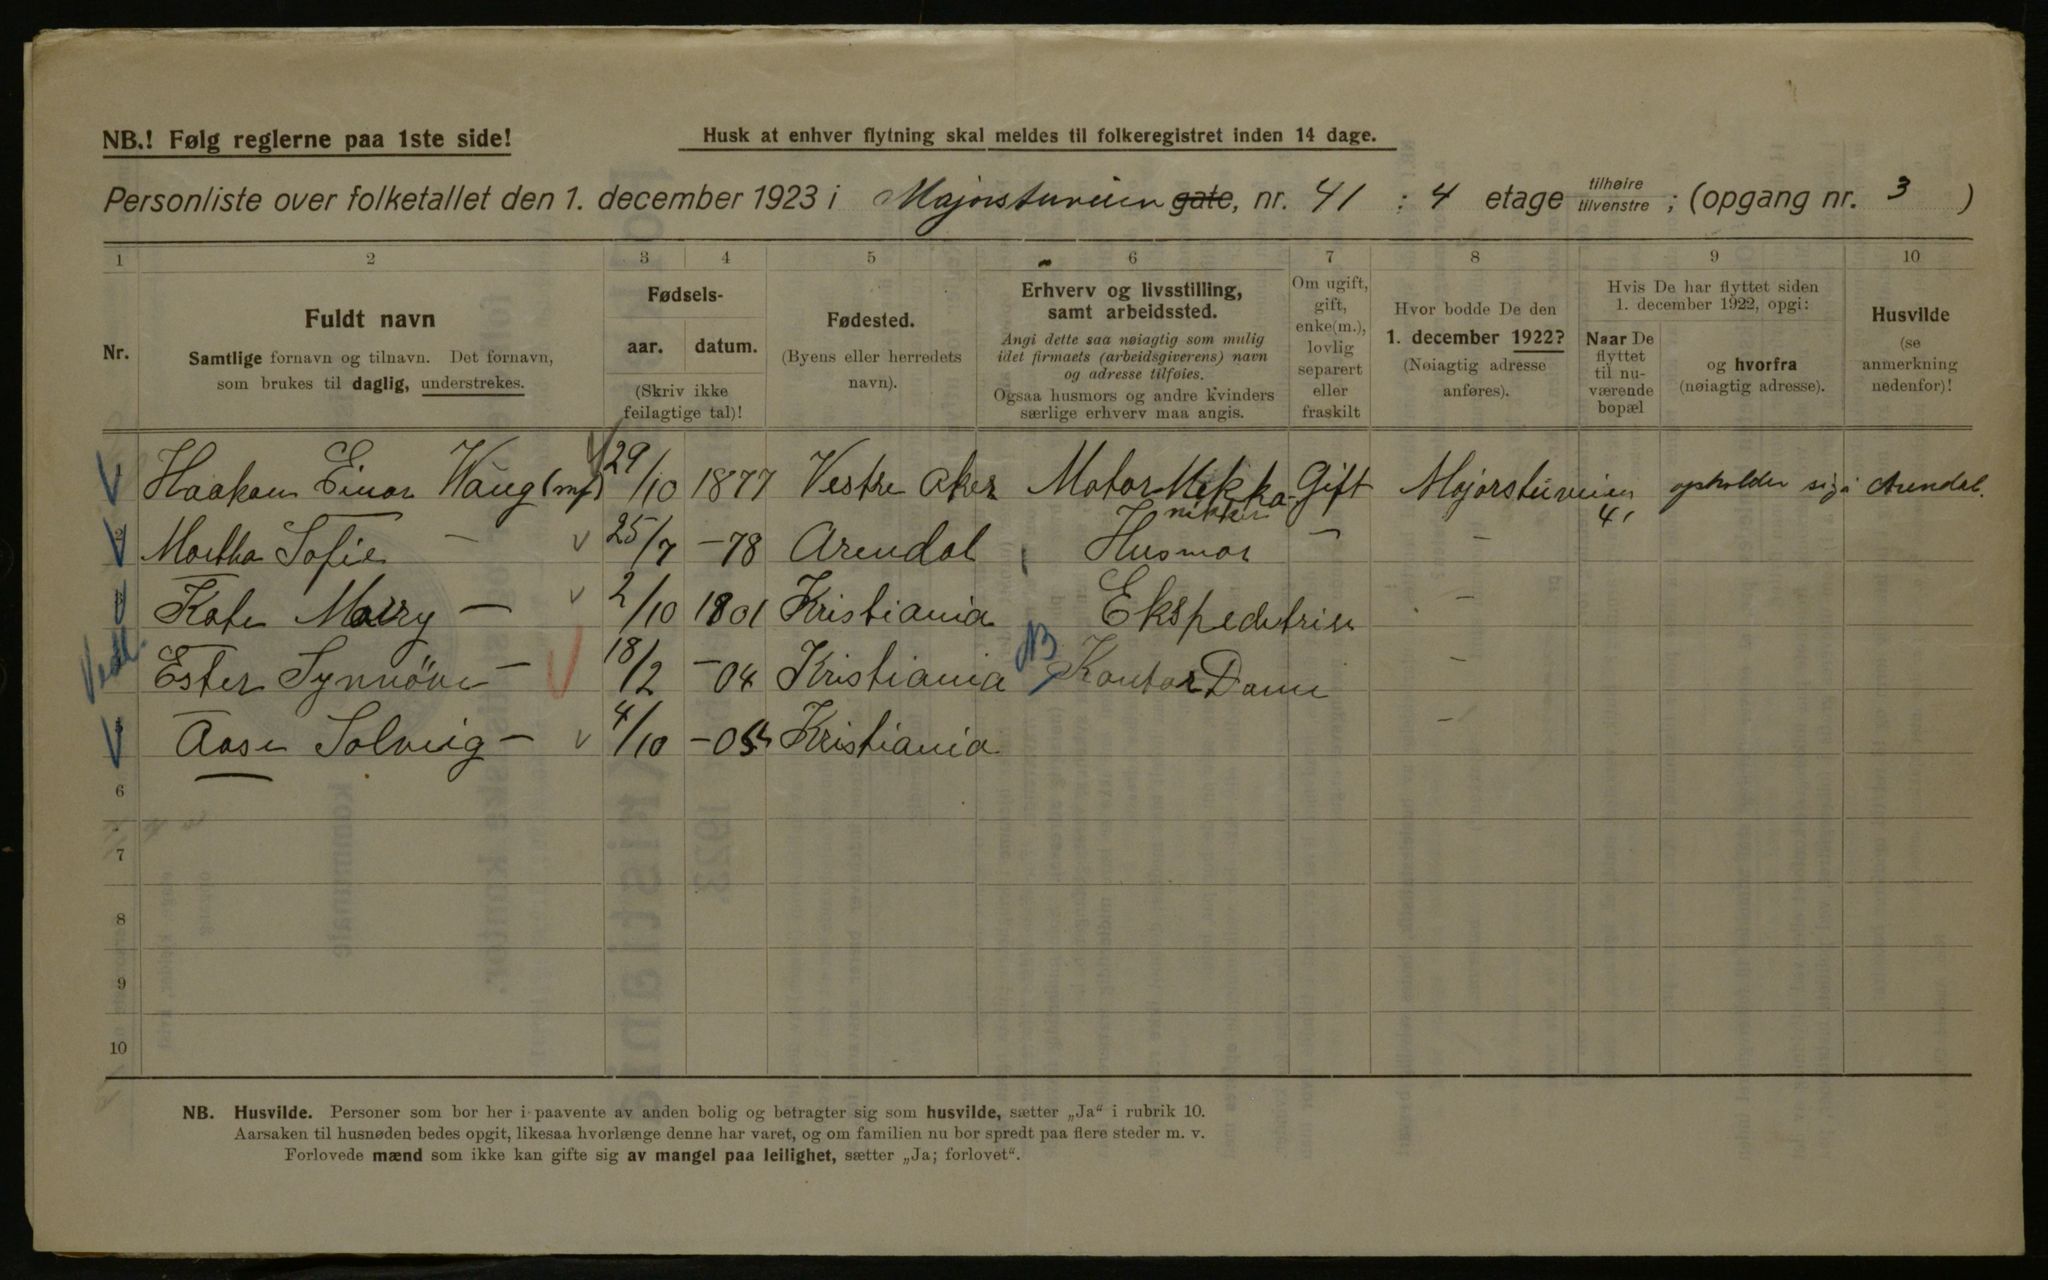 NB.! Følg reglerne paa 1ste side!
Husk at enhver flytning skal meldes til folkeregistret inden 14 dage.
Personliste over folketallet den 1. december 1923 i Majorstuveien gate, nr. 41 : 4 etage tilhøire tilvenstre ; (opgang nr. 3 )
1 2 3 4 5 6 7 8 9 10
Nr.
Fuldt navn
Samtlige fornavn og tilnavn. Det fornavn,
som brukes til daglig, understrekes.
Fødsels-
aar. datum.
(Skriv ikke
feilagtige tal)!
Fødested.
(Byens eller herredets
navn).
Erhverv og livsstilling,
samt arbeidssted.
Angi dette saa nøiagtig som mulig
idet firmaets (arbeidsgiverens) navn
og adresse tilføies.
Ogsaa husmors og andre kvinders
særlige erhverv maa angis.
Om ugift,
gift,
enke(m.),
lovlig
separert
eller
fraskilt
Hvor bodde De den
1. december 1922?
(Nøiagtig adresse
anføres).
Hvis De har flyttet siden
1. december 1922, opgi:
Naar De
flyttet
til nu-
værende
bopæl
og hvorfra
(nøiagtig adresse).
Husvilde
(se
anmerkning
nedenfor)!
Haakon Einar Waug (mf) 29/10 1877 Vestre Aker Motor Mekka- Gift Majorstuveien opholder sig i Arendal.
nikker 41
Martha Sofie — 25/7 -78 Arendal Husmor — -
Kate Mary — 2/10 1901 Kristiania Ekspeditrise -
Ester Synnöve — 18/2 -04 Kristiania NB Kontor Dame -
Aase Solveig — 4/10 -05 Kristiania -
6
7
8
9
10
NB. Husvilde. Personer som bor her i paavente av anden bolig og betragter sig som husvilde, sætter „Ja“ i rubrik 10.
Aarsaken til husnøden bedes opgit, likesaa hvorlænge denne har varet, og om familien nu bor spredt paa flere steder m. v.
Forlovede mænd som ikke kan gifte sig av mangel paa leilighet, sætter „Ja; forlovet“.